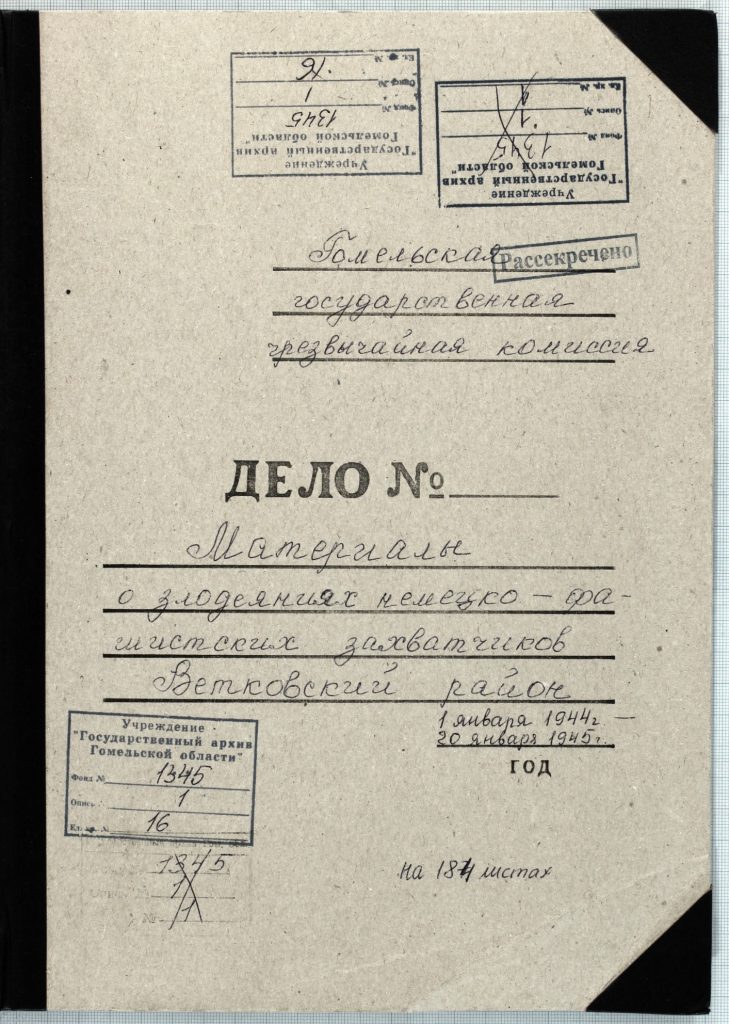 Учреждение
"Государственный архив
Гомельской области"
Фонд № 1345
Опись № 1
Ед. хр. № 16
Учреждение
"Государственный архив
Гомельской области"
Фонд № 1345
Опись № 1
Ед. хр. № 1
Гомельская
Рассекречено
государственная
чрезвычайная комиссия
ДЕЛО №
Материалы
о злодеяниях немецко – фа-
шистских захватчиков
Ветковский район
1 января 1944г –
20 января 1945г.
ГОД
Учреждение
"Государственный архив
Гомельской области"
Фонд № 1345
Опись 1
Ед. хр. № 16
1345
1
№ 1
на 184 листах